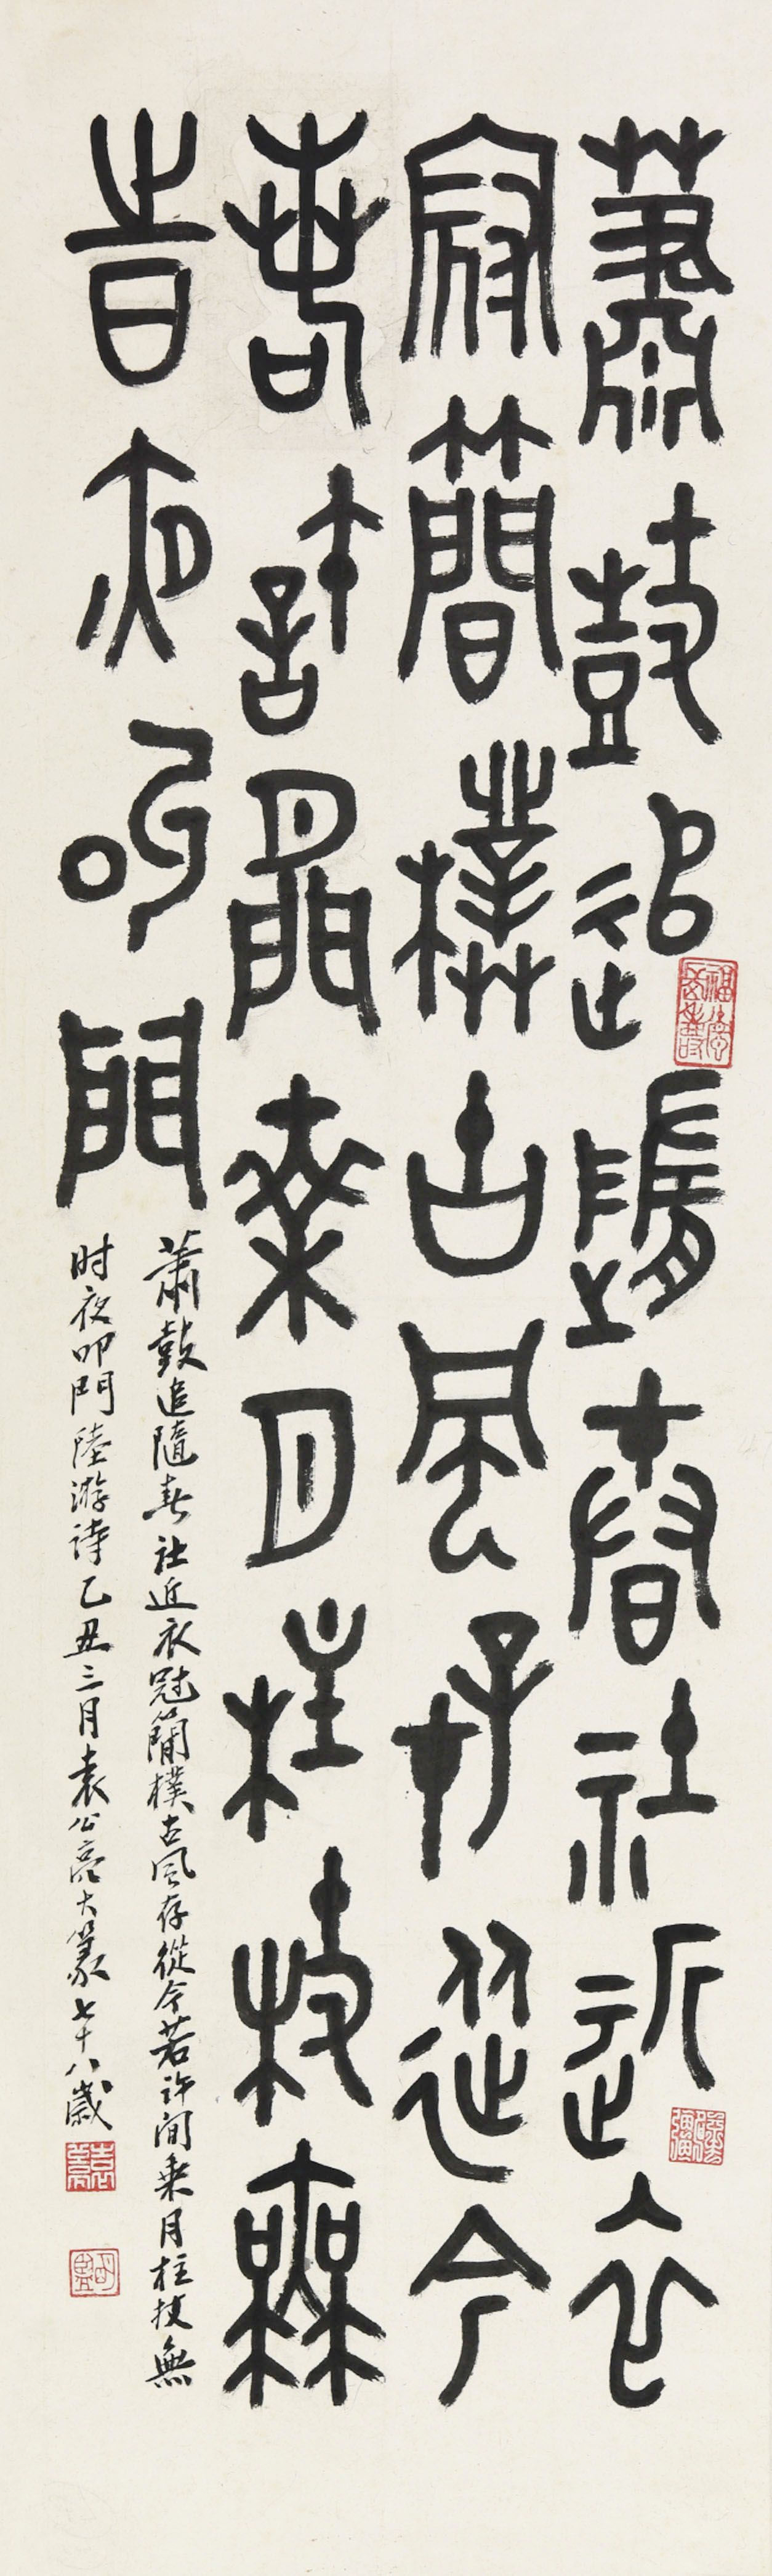 蕭鼓追隨春社近衣
冠簡樸古風存從今
若許閒乘月柱杖無
時夜叩門
蕭鼓追隨春社近衣冠簡樸古風存從今若許閒乘月柱杖無
时夜叩門陸游詩乙丑三月袁公亮大篆七十八歲